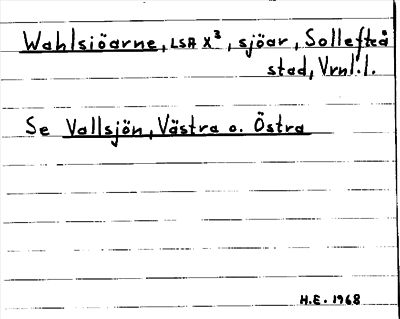 Wahlsiöarne, LSA X³, sjöar, Sollefteå
stad, Vrnl.l.
Se Vallsjön, Västra o. Östra
H.E. 1968